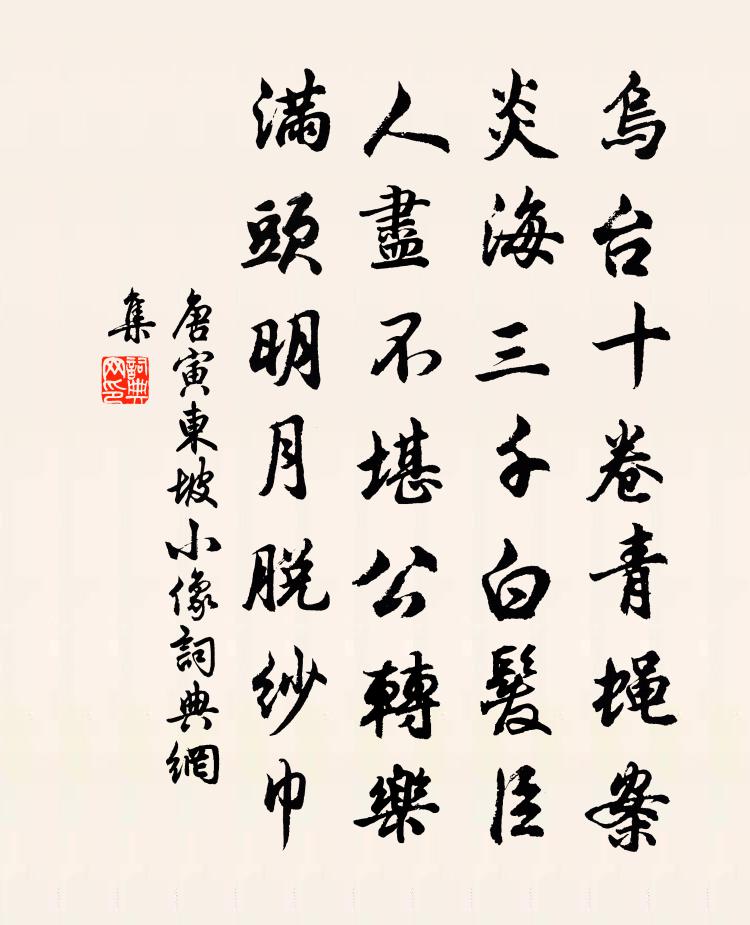 烏台十卷青蝇案
炎海三千白髮臣
人盡不堪公轉樂
滿頭明月脱纱巾
唐寅東坡小像詞典網
集
詞典
网印